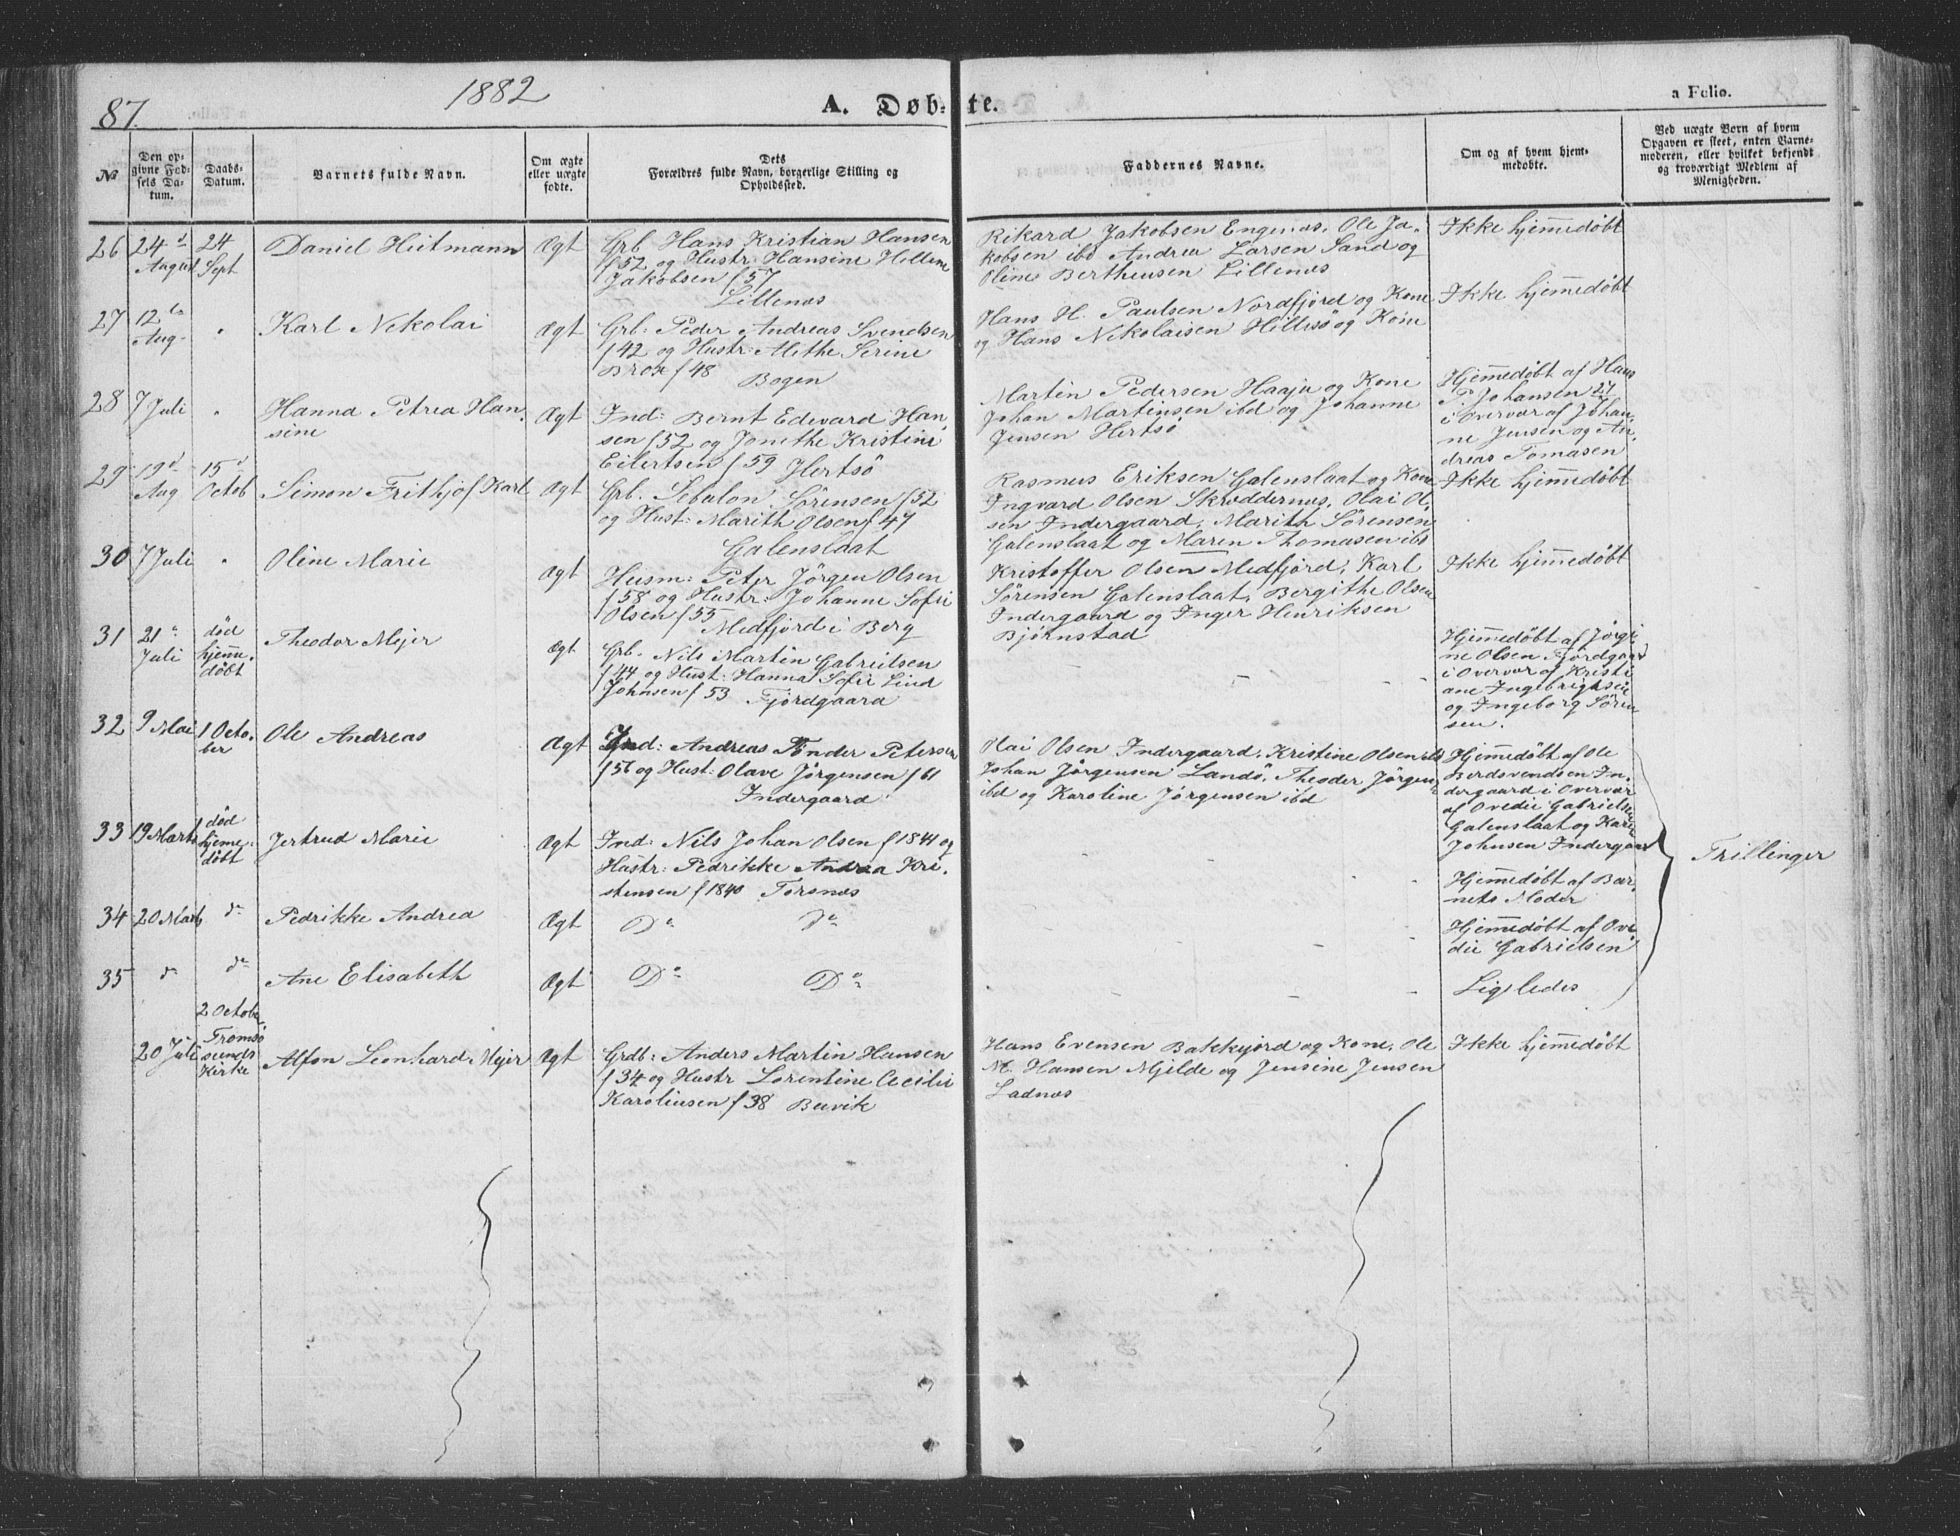 87.
1882
A. Døb-te.
a Folio.
№
Den op-
givne Fød-
sels Da-
tum.
Daabs-
Datum.
Barnets fulde Navn.
Om ægte
eller uægte
fødte.
Dets
Forældres fulde Navn, borgerlige Stilling og
Opholdssted.
Faddernes Navne.
Om og af hvem hjem-
medøbte.
Ved uægte Børn af hvem
Opgaven er skeet, enten Barne-
moderen, eller hvilket bekjendt
og troværdigt Medlem af
Menigheden.
26
24 d
August
24
Sept
Daniel Heitmann
Ægt
Grb. Hans Kristian Hansen
f 52 og Hustr: Hansine Hellene
Jakobsen f 57
Lillenæs
Rikard Jakobsen Engenæs, Ole Ja-
kobsen ibd Andrea Larsen Sand og
Oline Bertheusen Lillenæs
Ikke hjemmedøbt
27
12 te
Aug-
"
Karl Nekolai
Ægt
Grb: Peder Andreas Svendsen
f 42 og Hustr: Alethe Serine
Brox f 48 Bogen
Hans H. Paulsen Nordfjord og Kone
og Hans Nikolaisen Hillesø og Kone
Ikke hjemmedøbt
28
7 Juli
"
Hanna Petrea Han-
sine
Ægt
Ind: Bernt Edevard Han-
sen f 52 og Jonethe Kristine
Eilertsen f 59 Hertsø
Martin Pedersen Haaja og Kone
Johan Martinsen ibd og Johanne
Jensen Hertsø
Hjemmedøbt af Hans
P. Johansen
i Overvær af Johan-
ne Jensen og An-
dreas Tomasen
29
19 d
Aug
15 d
Octob
Simon Frithjof Karl
Ægt
Grb. Sebalon Sørensen f 52
og Hust: Marith Olsen f 47
Galenslaat
Rasmus Eriksen Galenslaat og Kone
Ingvard Olsen Skrøddernæs, Olai Ol-
sen Indergaard, Marith Sørensen
Galenslaat og Maren Thomasen ibd
Ikke hjemmedøbt
30
7 Juli
"
Oline Marie
Ægt
Husm: Peter Jørgen Olsen
f 58 og Hustr: Johanne Sofie
Olsen f 55
Medfjord i Berg
Kristoffer Olsen Medfjord, Karl
Sørensen Galenslaat, Bergithe Olsen
Indergaard og Inger Henriksen
Bjørnstad
Ikke hjemmedøbt
31
21
Juli
død
hjemme-
døbt
Theodor Mejer
Ægt
Grb. Nils Martin Gabrielsen
f 44 og Hust: Hanna Sofie Lind
Johnsen f 53 Fjordgaard
Hjemmedøbt af Jørgi-
ne Olsen Fjordgaard
i Overvær af Kristi-
ane Ingebrigtsen
og Ingeborg Søren-
sen.
32
9 Mai
1 Octo-
ber
Ole Andreas
Ægt
Ind: Andreas Petersen
f 56 og Hust: Olave Jørgensen f 61
Indergaard
Olai Olsen Indergaard, Kristine Olsen ibd
Johan Jørgensen Landø, Theodor Jørgen-
ibd og Karoline Jørgensen ibd
Hjemmedøbt af Ole
Berdsvendsen In-
dergaard i Overvær
af Ovedie Gabrielsen
Galenslaat og Karen
Johnsen Indergaard
33
19 Marts
død
hjeme-
døbt
Jertrud Marie
Ægt
Ind: Nils Johan Olsen f 1841 og
Hustr: Pedrikke Andrea Kri-
stensen f 1840 Torsnæs
Hjemmedøbt af Bar-
nets Moder
Trillinger
34
20 Marts
do
Pedrikke Andrea
Ægt
Do Do
Hjemmedøbt af Ove-
die Gabrielsen
35
do
do
Ane Elisabeth
Ægt
Do Do
Ligeledes
20 Juli
2 October
Tromsø
sunds
Kirke
Alfon Leonhard Mejer
Ægt
Grdb: Anders Martin Hansen
f 34 og Hustr Lorentine Cecilie
Karoliusen f 38 Buvik
Hans Evensen Bakkejord og Kone, Ole
M. Hansen Mjelde og Jensine Jensen
Ladnæs
Ikke hjemmedøbt